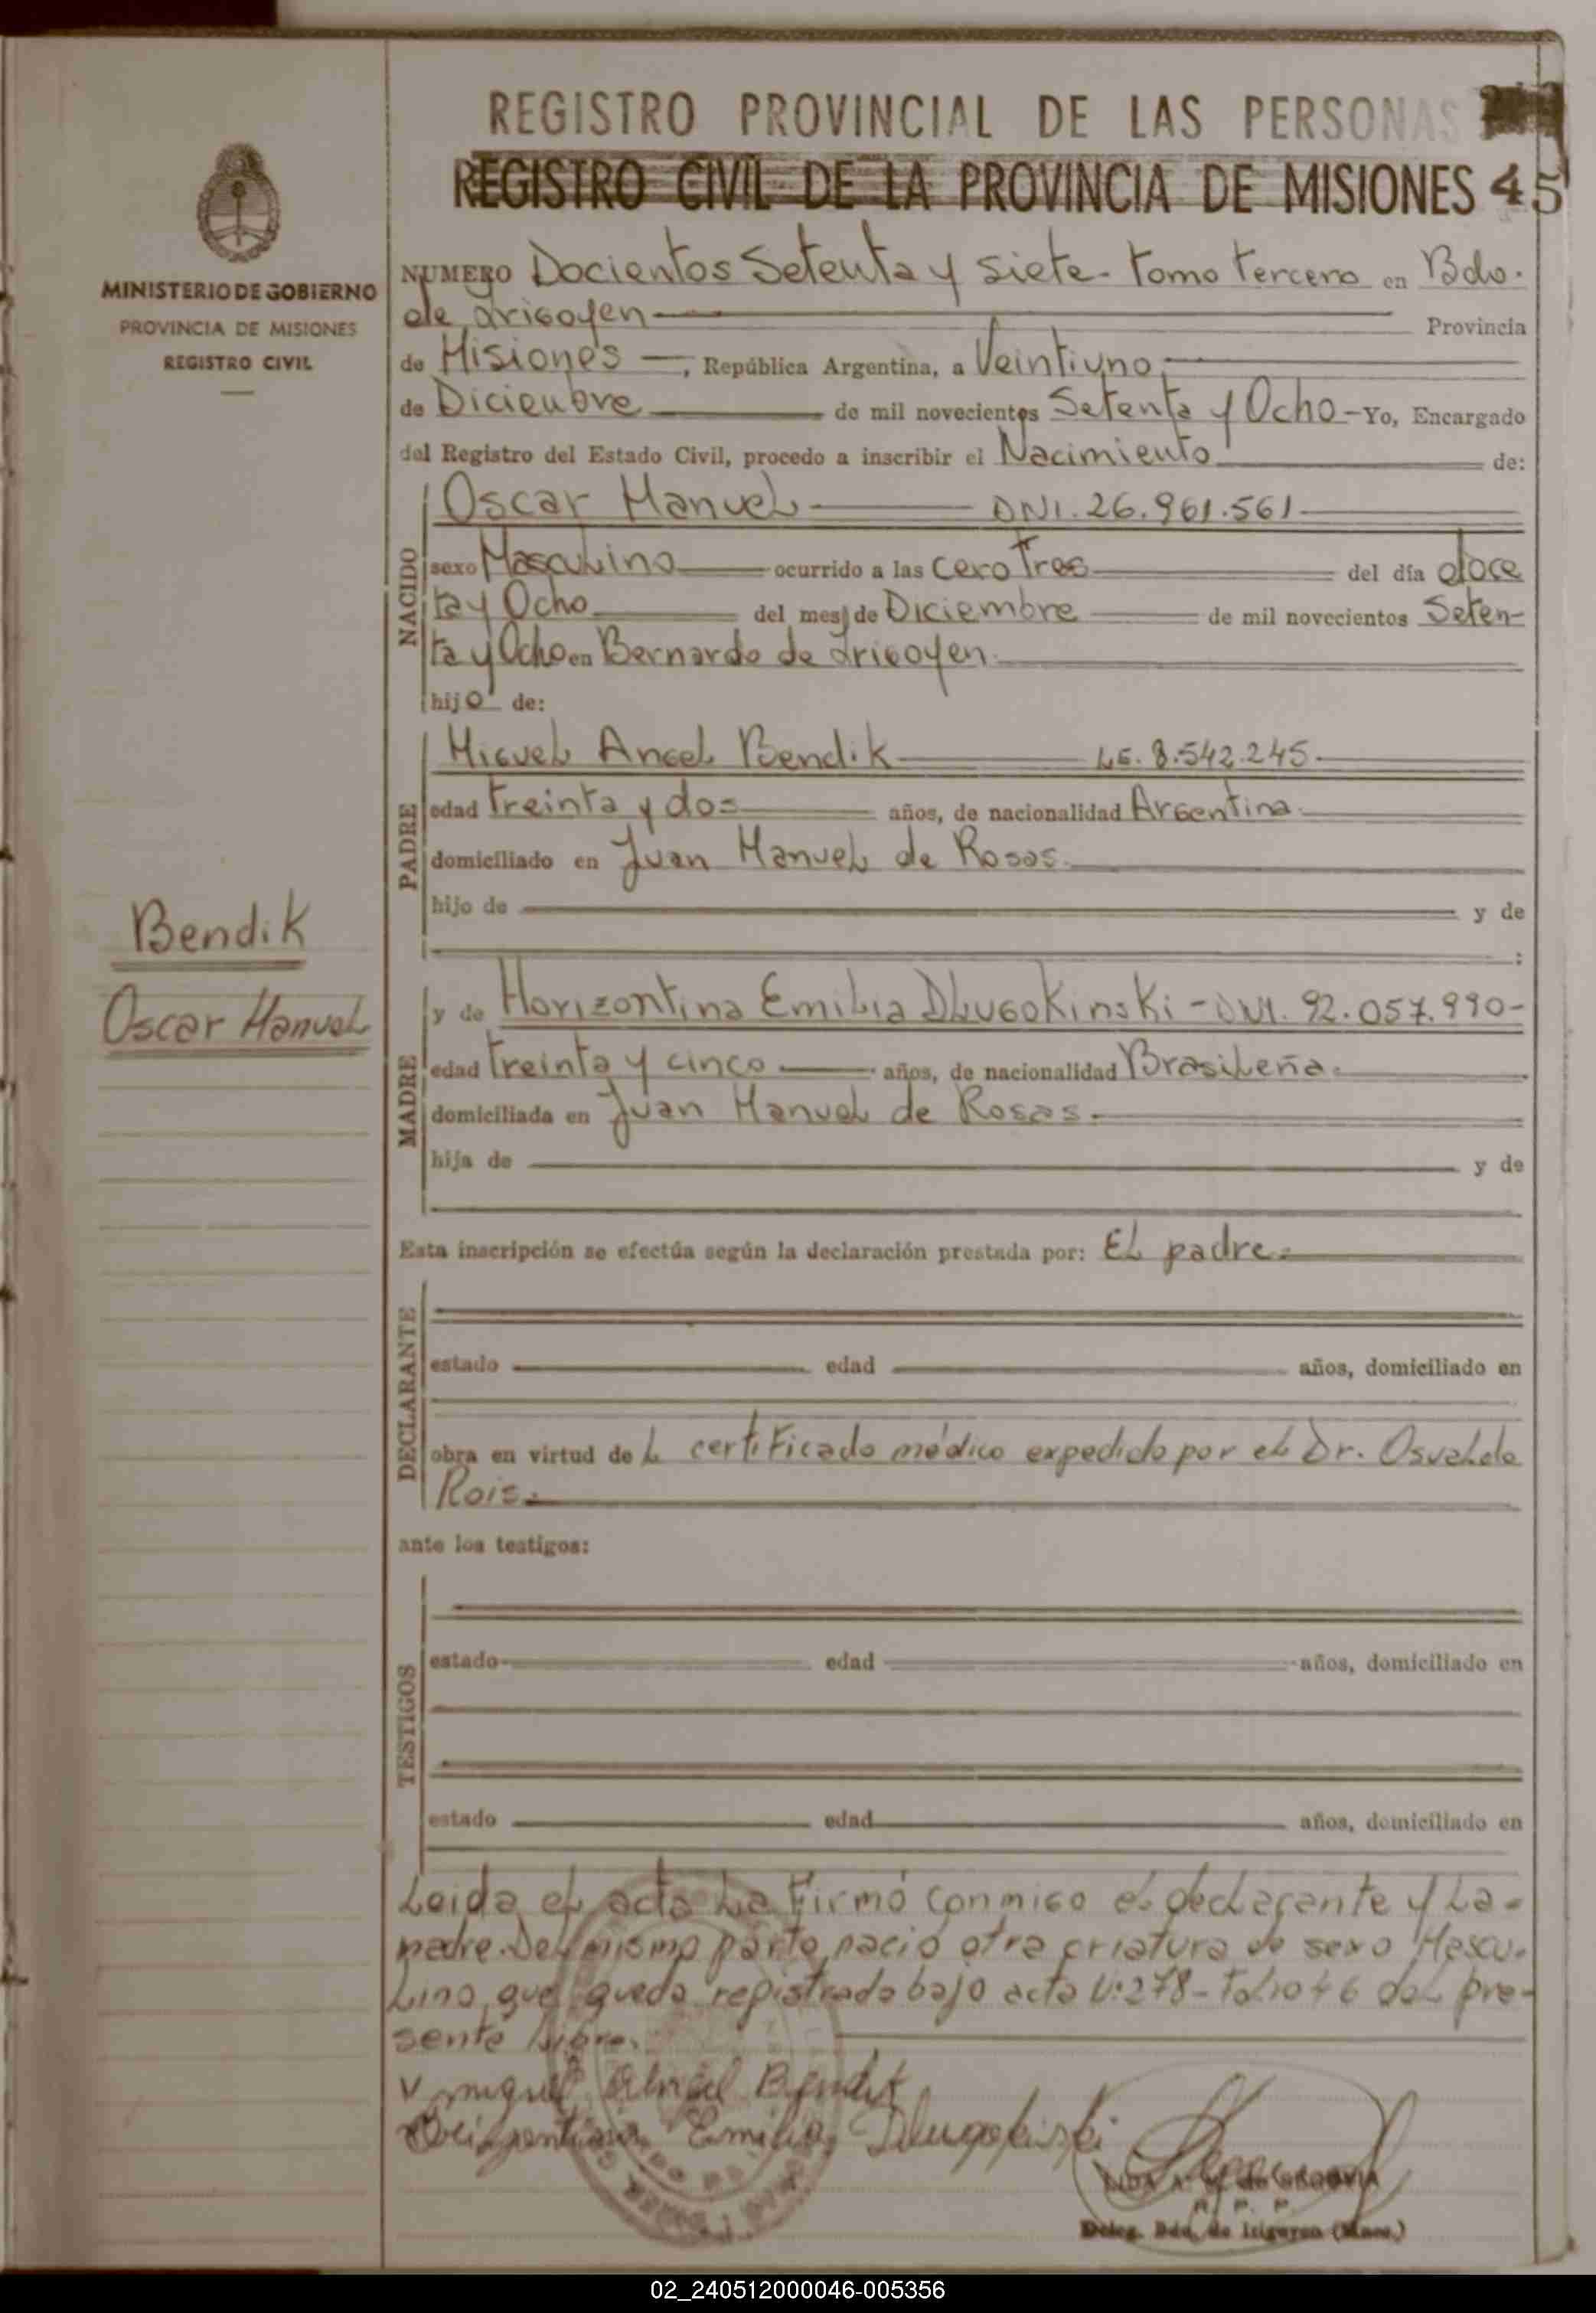 REGISTRO PROVINCIAL DE LAS PERSONAS
REGISTRO CIVIL DE LA PROVINCIA DE MISIONES 45
MINISTERIO DE GOBIERNO
PROVINCIA DE MISIONES
REGISTRO CIVIL
NUMERO Docientos Setenta y Siete - tomo tercero en Bdo.
de Irigoyen Provincia
de Misiones, República Argentina, a Veintiuno
de Diciembre de mil novecientos Setenta y Ocho - Yo, Encargado
del Registro del Estado Civil, procedo a inscribir el Nacimiento de:
NACIDO
Oscar Manuel DNI. 26.961.561
sexo Masculino ocurrido a las cero Tres del día doce
ta y Ocho del mes de Diciembre de mil novecientos Seten-
ta y Ocho en Bernardo de Irigoyen.
hijo de:
PADRE
Miguel Angel Bendik LE. 8.542.245
edad treinta y dos años, de nacionalidad Argentina.
domiciliado en Juan Manuel de Rosas.
hijo de y de
:
Bendik
Oscar Manuel
MADRE
y de Horizontina Emilia Dlugokinski - DNI. 92.057.990-
edad treinta y cinco años, de nacionalidad Brasileña.
domiciliada en Juan Manuel de Rosas.
hija de y de
Esta inscripción se efectúa según la declaración prestada por: El padre.
DECLARANTE
estado edad años, domiciliado en
obra en virtud del certificado médico expedido por el Dr. Osvaldo
Rois.
ante los testigos:
TESTIGOS
estado edad años, domiciliado en
estado edad años, domiciliado en
Leida el acta La Firmó conmigo el declarante y La-
madre. Del mismo parto nació otra criatura de sexo Mascu-
Lino, que queda registrado bajo acta N: 278 - Folio 46 del pre-
sente libro.
Miguel Angel Bendik
Horizontina Emilia Dlugokinski
LIDA A. de SEGOVIA
R. P. P.
Deleg. Bdo. de Irigoyen (Mnes.)
02_240512000046-005356